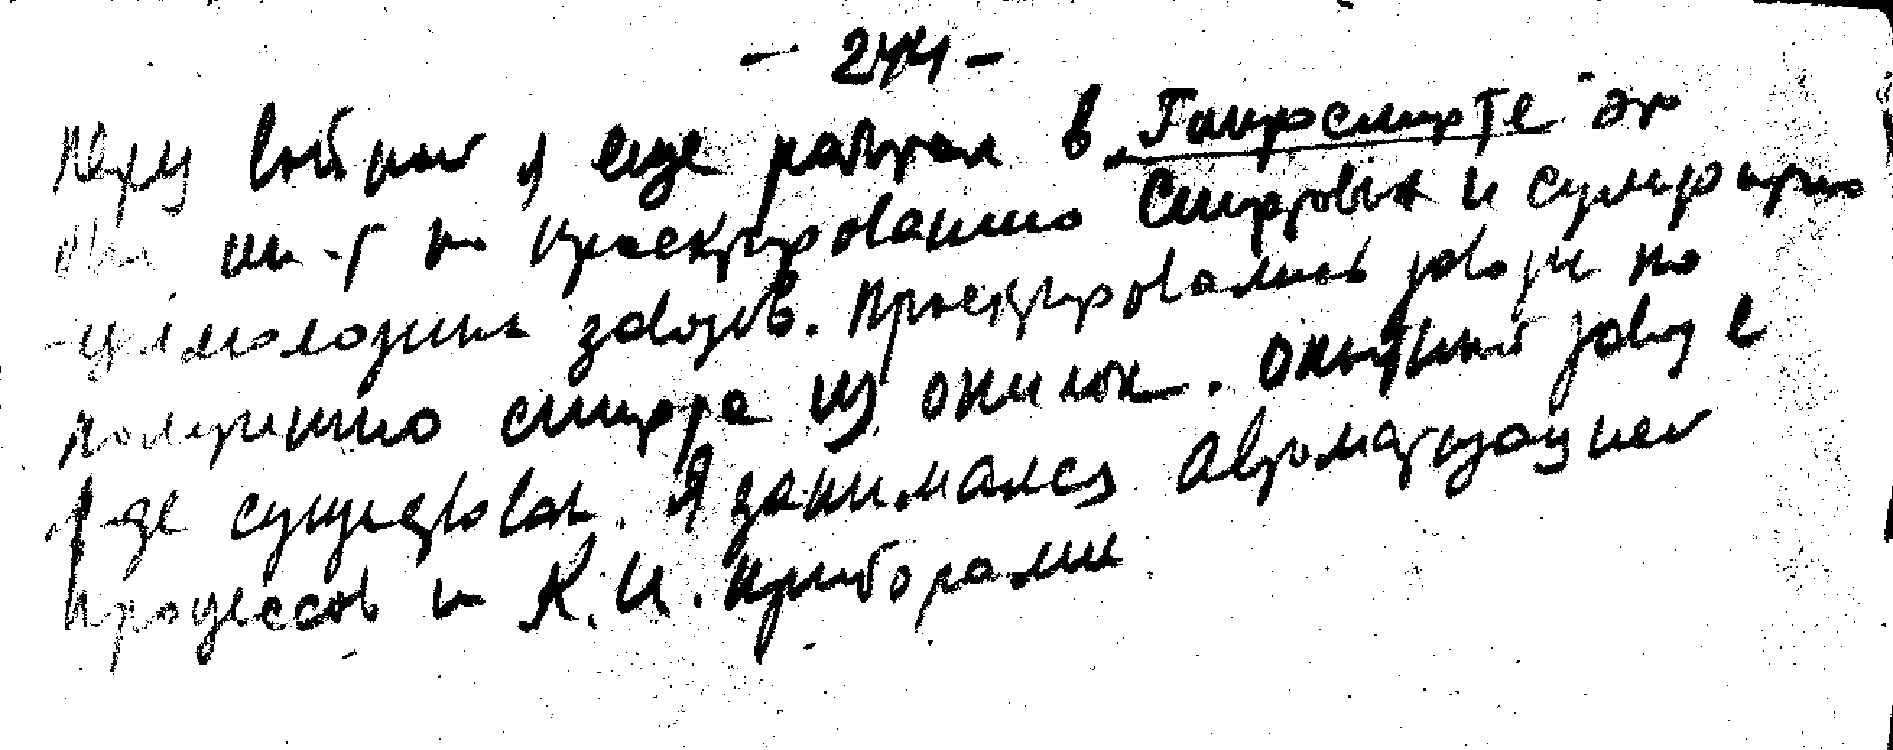 - 244 -
Перед войной я еще работал в "Гипроспирте" это
был ин-т по проектированию спиртовых и сульфитно
-целлюлозных заводов. Проектировались заводы по
получению спирта из опилок. Опытный завод в
где существовал. Я занимался автоматизацией
процессов и К.И. приборами